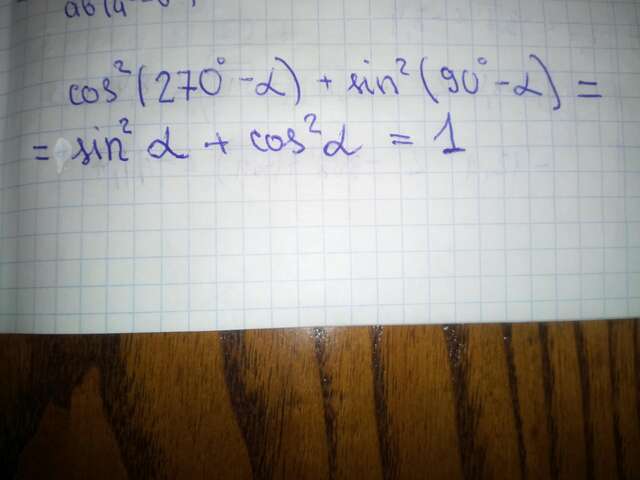 cos²(270° - α) + sin²(90° - α) =
= sin² α + cos² α = 1